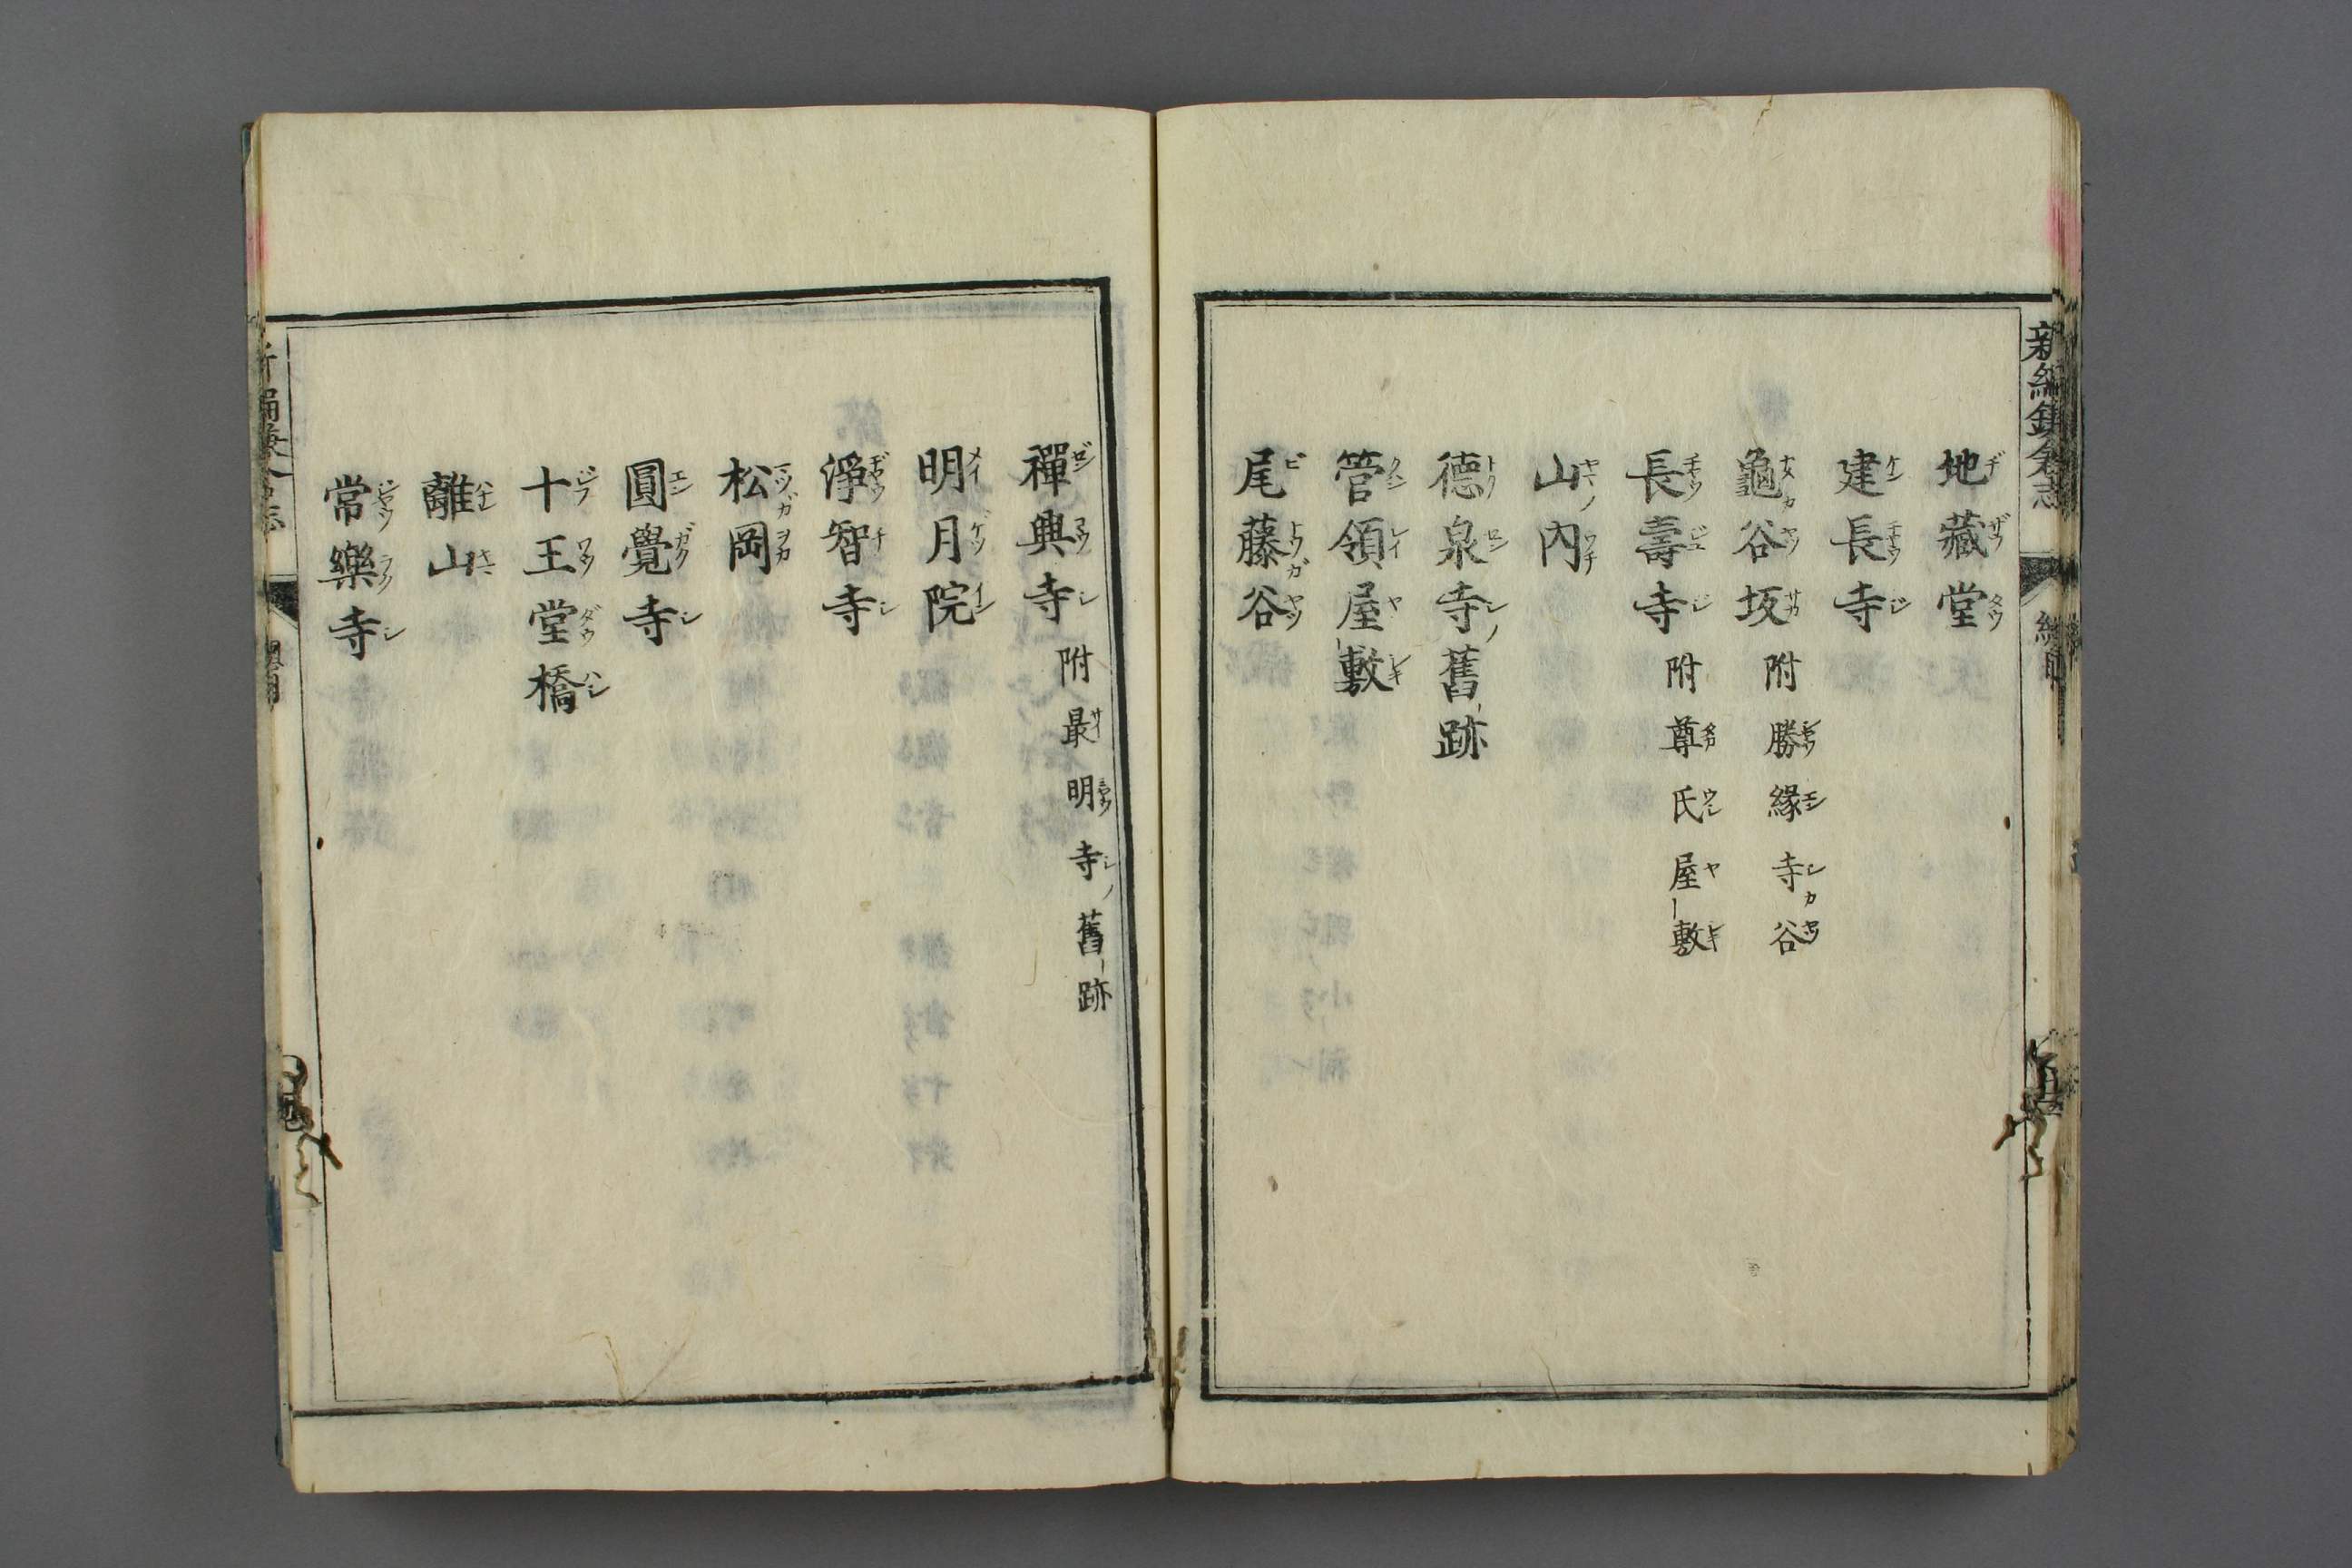 新編鎌倉志
總目
地藏堂
建長寺
龜谷坂 附勝緣寺谷
長壽寺 附尊氏屋敷
山內
德泉寺舊跡
管領屋敷
尾藤谷
禪興寺 附最明寺舊跡
明月院
淨智寺
松岡
圓覺寺
十王堂橋
離山
常樂寺